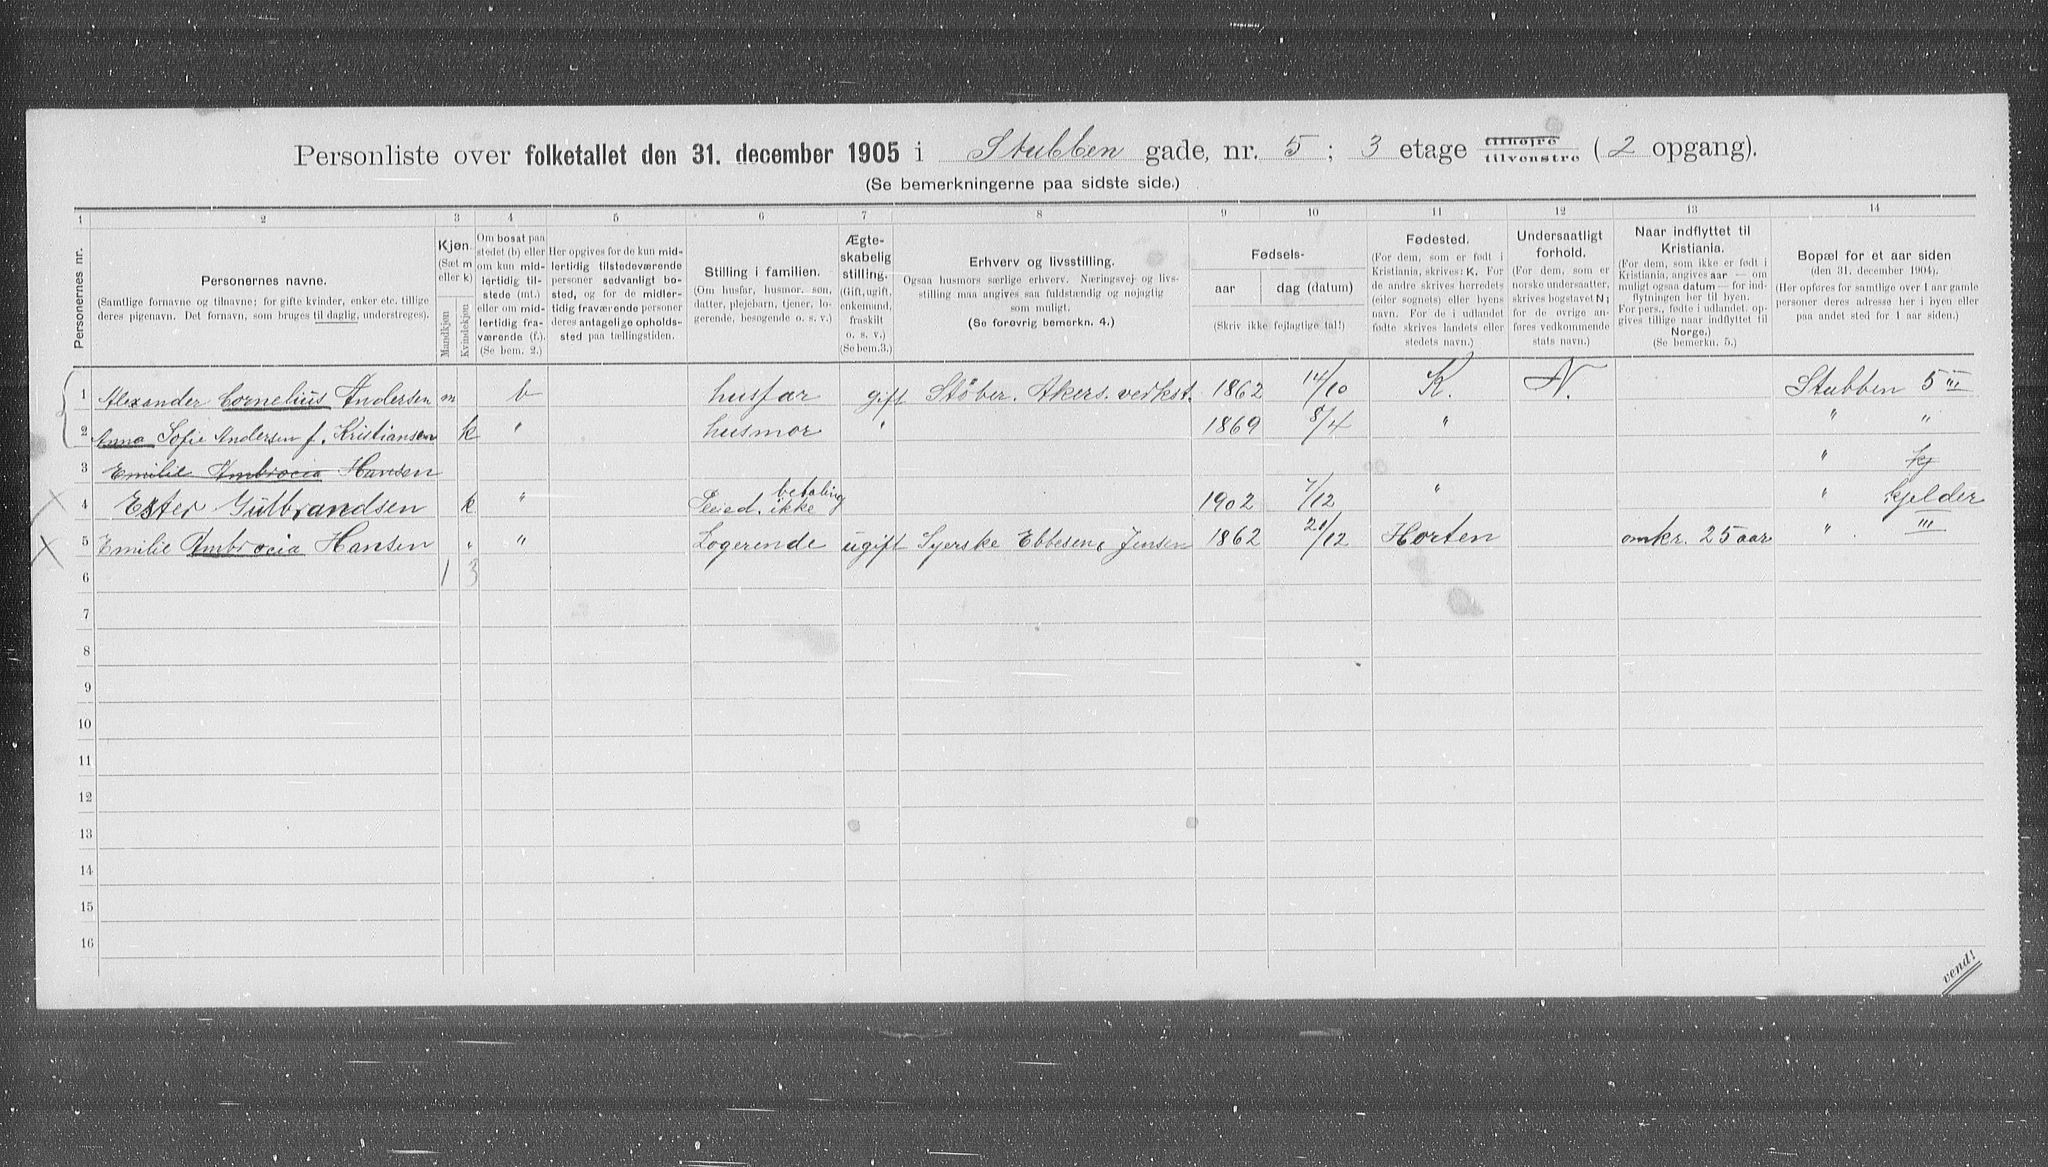 Personliste over folketallet den 31. december 1905 i Stubben gade, nr. 5; 3 etage tilhøjre tilvenstre (2 opgang).
(Se bemerkningerne paa sidste side.)
1 2 3 4 5 6 7 8 9 10 11 12 13 14
Personernes nr.
Personernes navne.
(Samtlige fornavne og tilnavne; for gifte kvinder, enker etc. tillige
deres pigenavn. Det fornavn, som bruges til daglig, understreges).
Kjøn.
(Sæt m
eller k)
Mandkjøn
Kvindekjøn
Om bosat paa
stedet (b) eller
om kun mid-
lertidig til-
stede (mt.)
eller om mid-
lertidig fra-
værende (f.).
(Se bem. 2.)
Her opgives for de kun mid-
lertidig tilstedeværende
personer sedvanligt bo-
sted, og for de midler-
tidig fraværende personer
deres antagelige opholds-
sted paa tællingstiden.
Stilling i familien.
(Om husfar, husmor, søn,
datter, plejebarn, tjener, lo-
gerende, besøgende o. s. v.)
Ægte-
skabelig
stilling.
(Gift, ugift,
enkemand,
fraskilt
o. s. v.)
(Se bem. 3.)
Erhverv og livsstilling.
Ogsaa husmors særlige erhverv. Næringsvej og livs-
stilling maa angives saa fuldstændig og nøjagtig
som muligt.
(Se forøvrig bemerkn. 4.)
Fødsels-
aar dag (datum)
(Skriv ikke fejlagtige tal!)
Fødested.
(For dem, som er født i
Kristiania, skrives: K. For
de andre skrives herredets
(eller sognets) eller byens
navn. For de i udlandet
fødte skrives landets eller
stedets navn.)
Undersaatligt
forhold.
(For dem, som er
norske undersaatter,
skrives bogstavet N;
for de øvrige an-
føres vedkommende
stats navn.)
Naar indflyttet til
Kristiania.
(For dem, som ikke er født i
Kristiania, angives aar — om
muligt ogsaa datum — for ind-
flytningen her til byen.
For pers., fødte i udlandet, op-
gives tillige naar indflyttet til
Norge.)
(Se bemerkn. 5.)
Bopæl for et aar siden
(den 31. december 1904).
(Her opføres for samtlige over 1 aar gamle
personer deres adresse her i byen eller
paa andet sted for 1 aar siden.)
1 Alexander Cornelius Andersen m b husfar gift Støber. Akers. verkst. 1862 14/10 K. N. Stubben 5 III
2 Anna Sofie Andersen f. Kristiansen k " husmor " 1869 8/4 " " "
3 Emilie Ambrocia Hansen " kj
4 Ester Gulbrandsen k " ikke betaling 1902 7/12 " " kjelder
5 Emilie Ambrocia Hansen " " Logerende ugift Syerske Ebbesen & Jensen 1862 21/12 Horten omkr. 25 aar " III
6 1 3
7
8
9
10
11
12
13
14
15
16
vend!